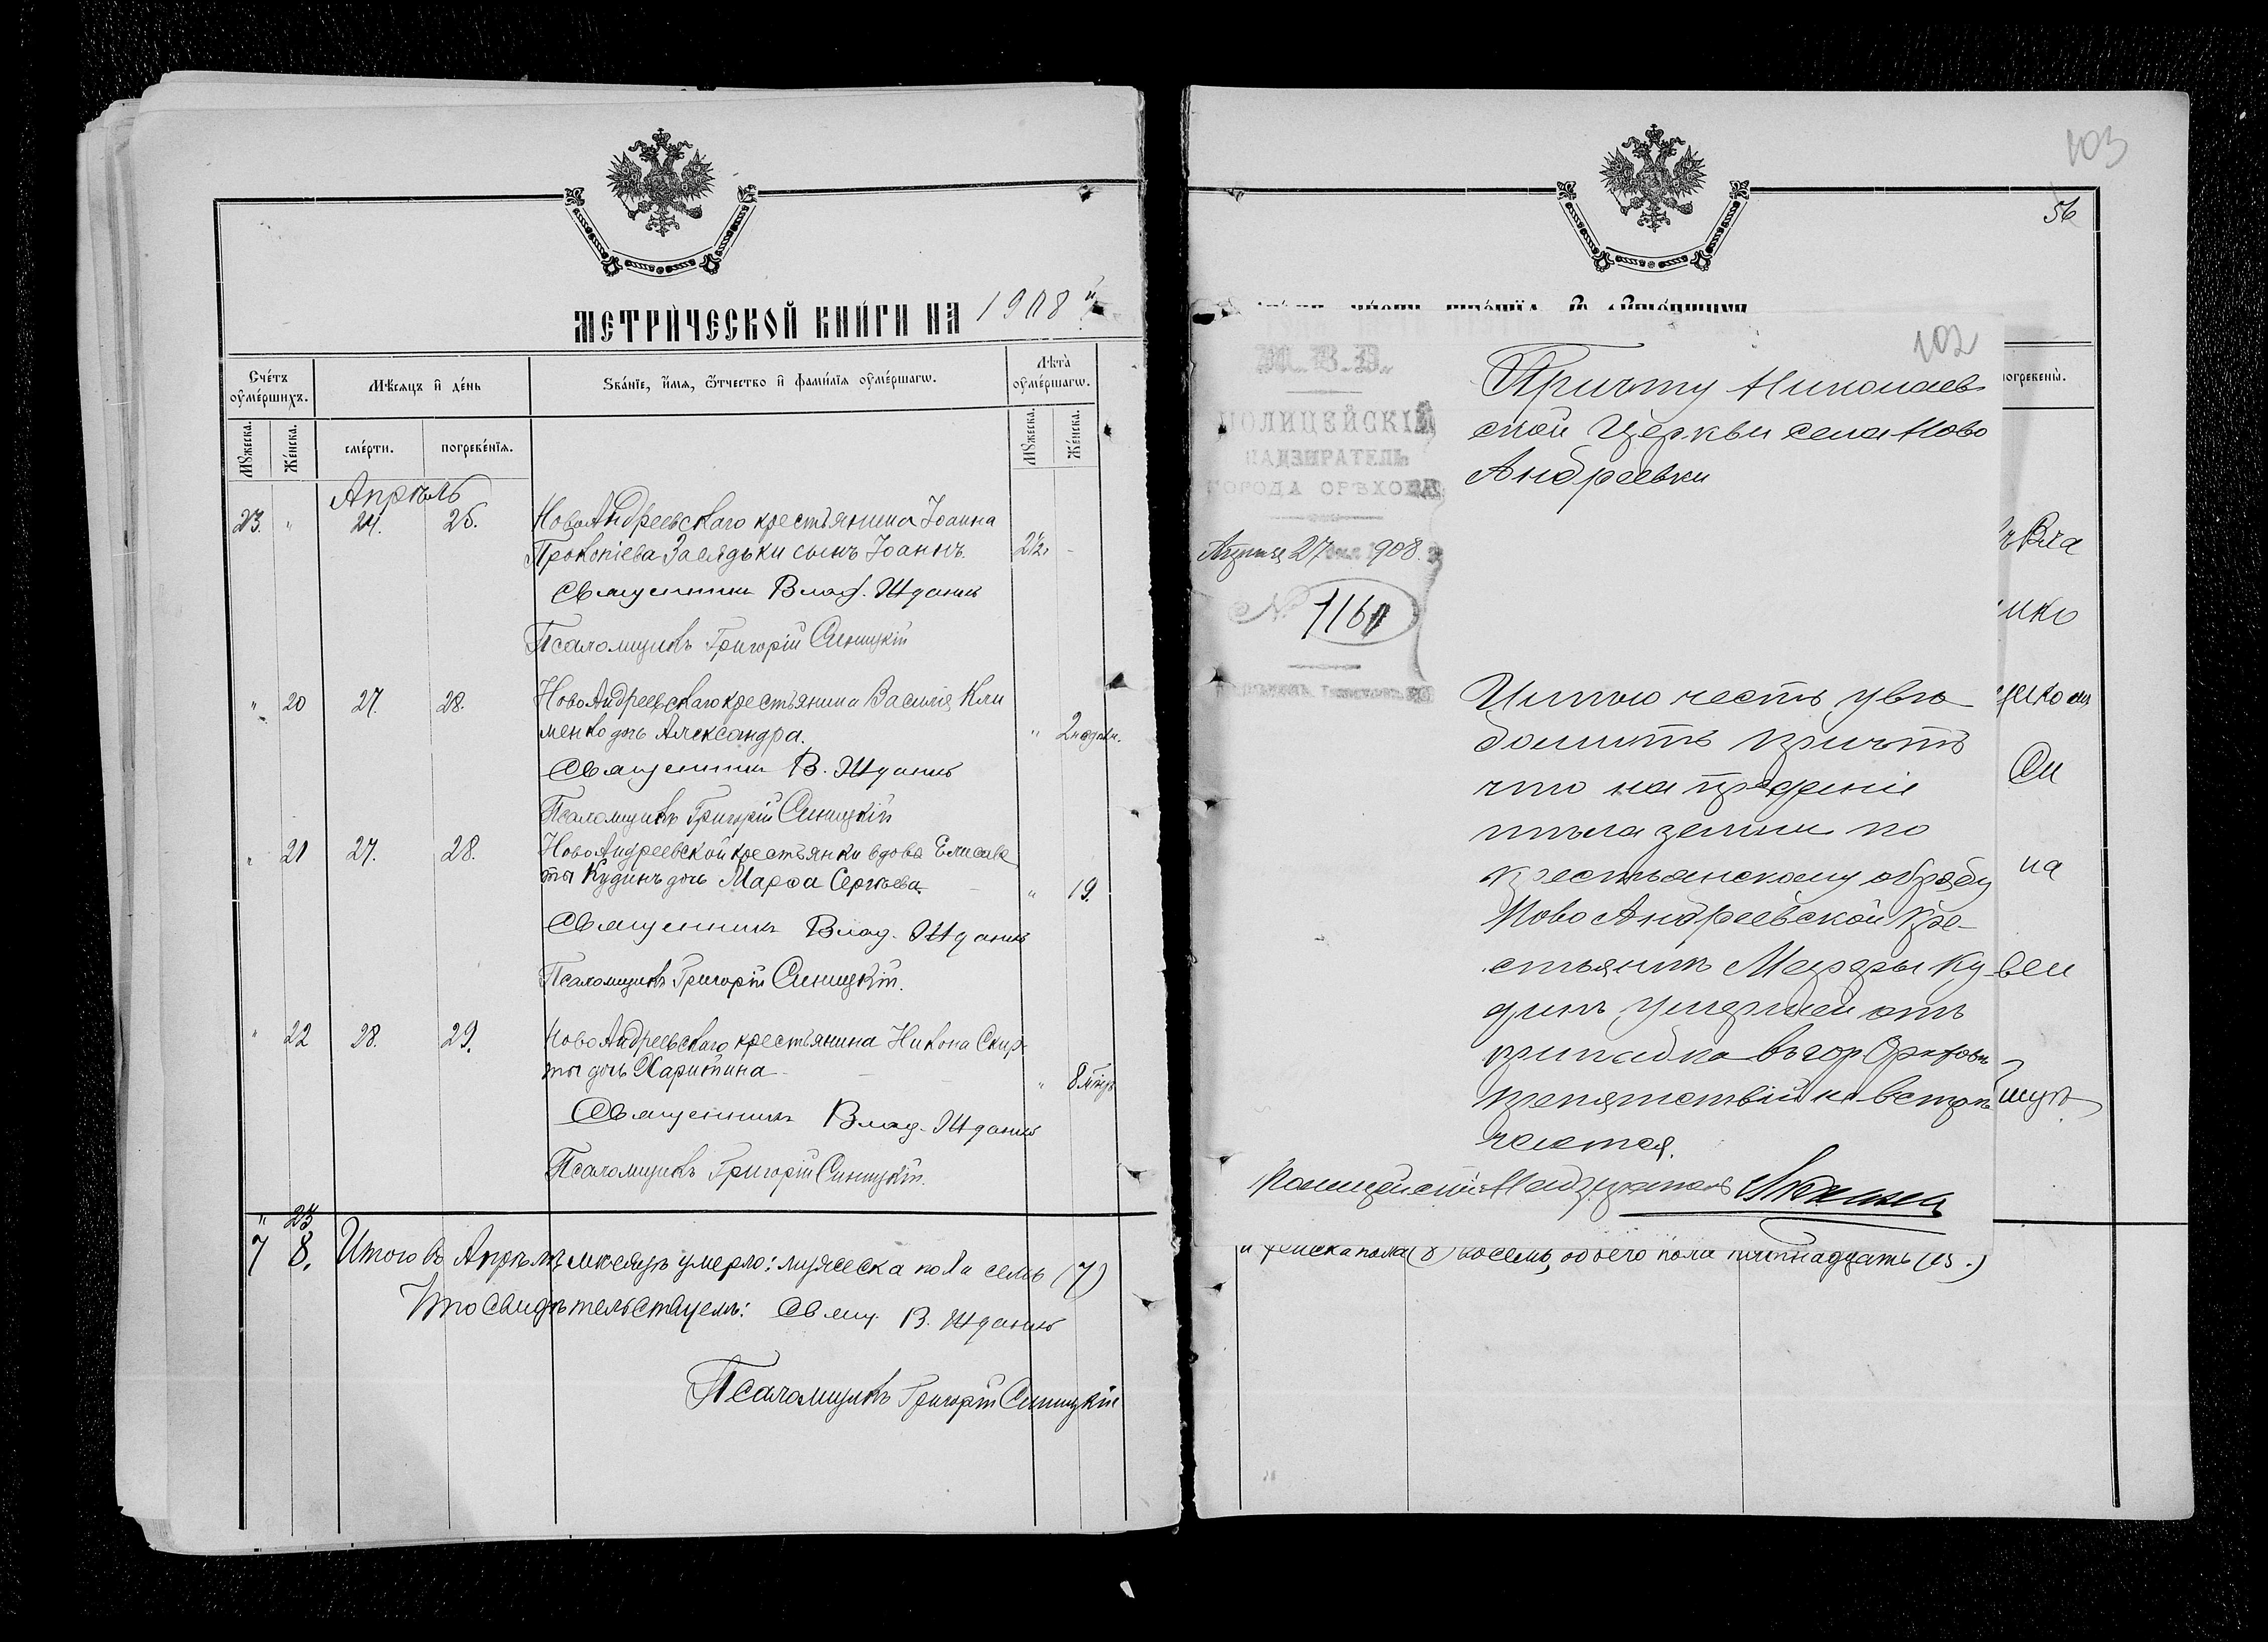 МЕТРИЧЕСКОЙ КНИГИ НА 1908 й
Счетъ умершихъ.
Мѣсяцъ и день
Званіе, имя, отчество и фамилія умершаго.
Лѣта умершаго.
Мужеска.
Женска.
смерти.
погребенія.
Мужеска.
Женска.
Апрѣль
23. " 24. 26. НовоАндреевскаго крестьянина Іоанна
Прокопіева Заслдьки сынъ Іоаннъ. 2½ -
Священникъ Влад. Ждановъ
Псаломщикъ Григорій Синицкій
" 20 27. 28. НовоАндреевскаго крестьянина Василія Кли
менко дочь Александра. " 2 недѣли.
Священникъ В. Ждановъ
Псаломщикъ Григорій Синицкій
" 21 27. 28. НовоАндреевской крестьянки вдовы Елисаве
ты Кудинъ дочь Марѳа Сергѣева " 19.
Священникъ Влад. Ждановъ
Псаломщикъ Григорій Синицкій.
" 22 28. 29. НовоАндреевскаго крестьянина Никона Скир
ты дочь Харитина " 8 мѣс.
Священникъ Влад. Ждановъ
Псаломщикъ Григорій Синицкій.
" 23
7 8. Итого въ Апрѣлѣ мѣсяцѣ умерло: мужеска пола семь (7)
Что свидѣтельствуемъ: Свящ. В. Ждановъ
Псаломщикъ Григорій Синицкій
103
56
102
М. В. Д.
ПОЛИЦЕЙСКІЙ
НАДЗИРАТЕЛЬ
ГОРОДА ОРѢХОВА
Апрѣля 27 дня 1908 г.
№ 1160
Причту Николаев
ской Церкви села Ново
Андреевки
погребены.
Имѣю честь увѣ
домить причтъ
что на преданіе
тѣла землѣ по
христіанскому обряду
Ново Андреевской кре-
стьянки Марфы Ку
динъ умершей отъ
припадка въ гор Орѣховѣ
препятствій не встрѣ
чается.
Полицейскій Надзиратель
и женска пола (8) восемь, обоего пола пятнадцать (15.)